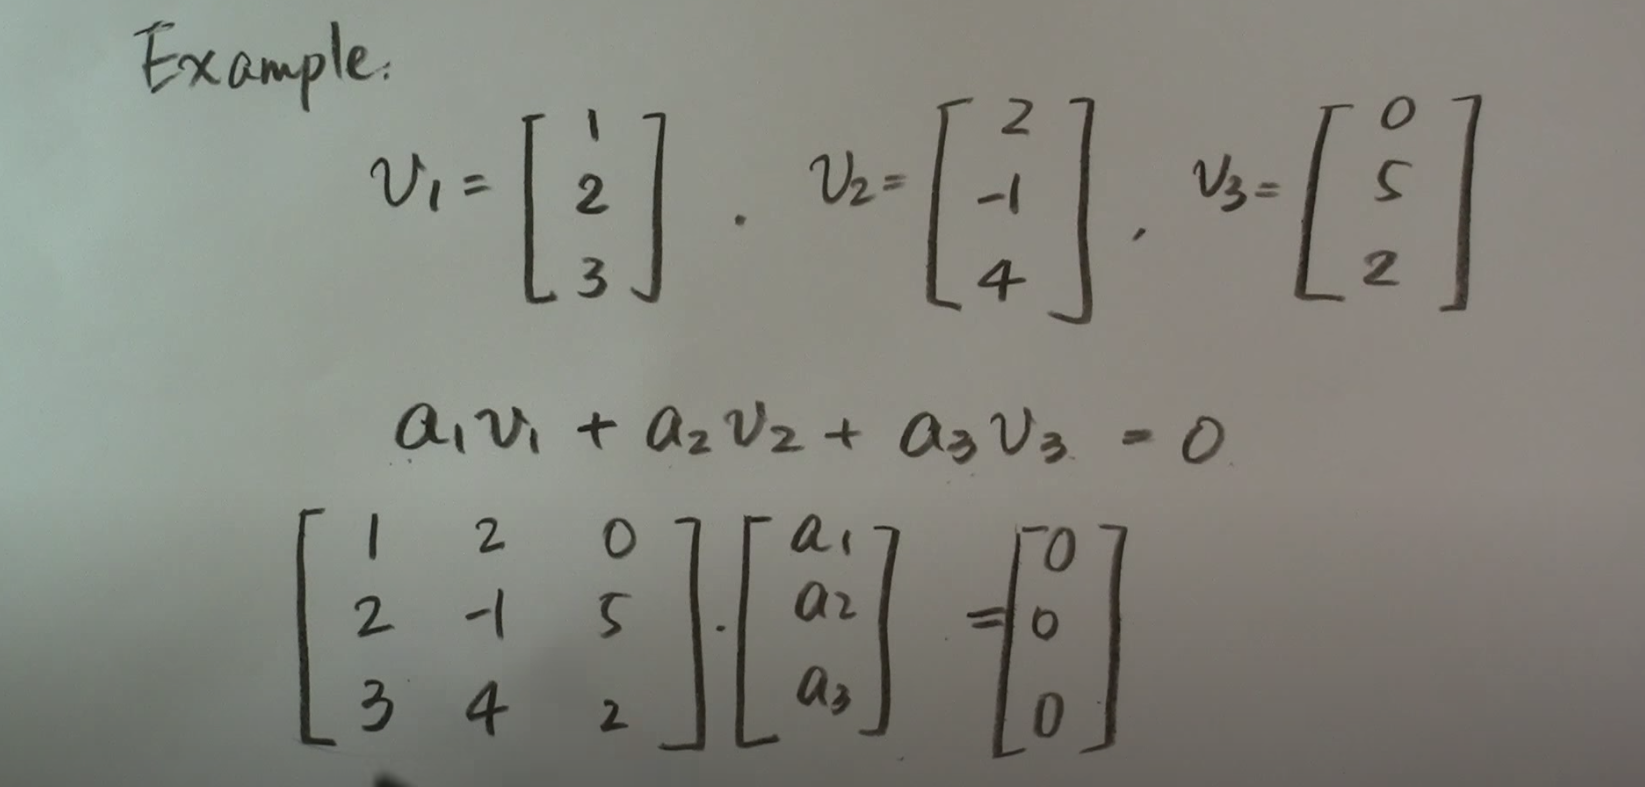 Example:
v1 = [1 2 3] . v2 = [2 -1 4] , v3 = [0 5 2]
a1v1 + a2v2 + a3v3 = 0
[1 2 0 . [a1 = [0
2 -1 5 a2 0
3 4 2] a3] 0]